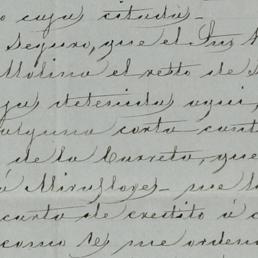 o cuja citada_
Seguro, que el Sor
Molina el resto de
ya detenida aqui,
alguna corta cant
de la Carreta, que
á Miraflores_ me
carta de credito á
como te me orden